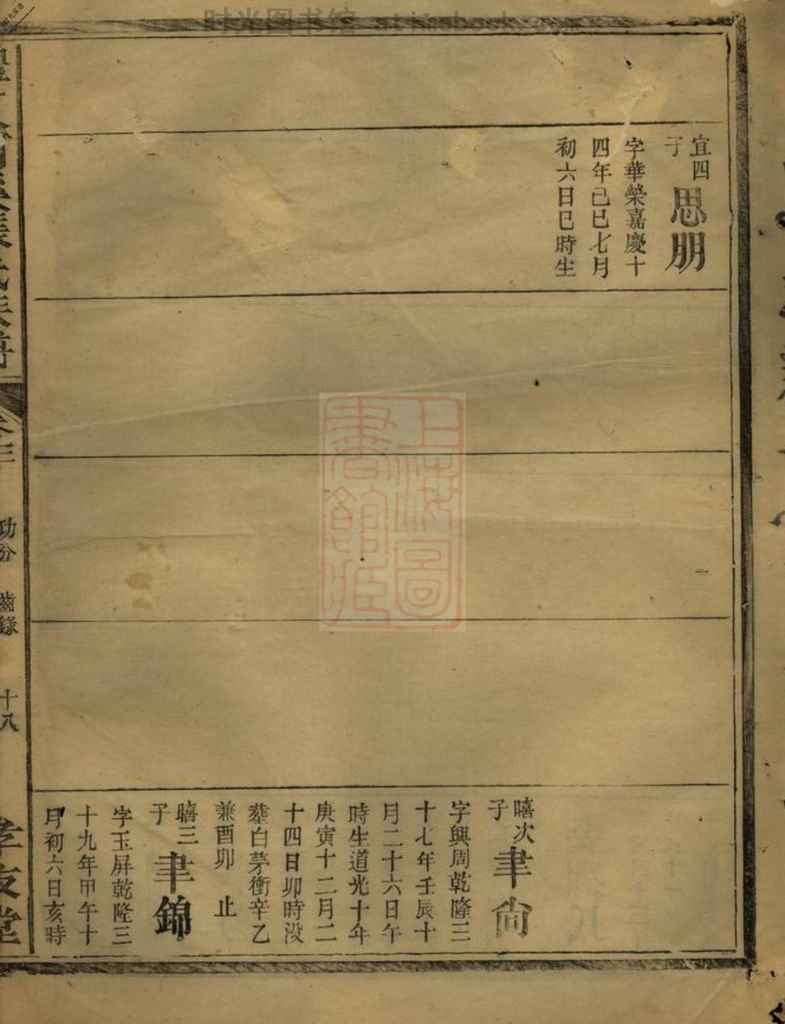 宜四
子
思朋
字華榮嘉慶十
四年己巳七月
初六日巳時生
嘻次
子
聿尙
字興周乾隆三
十七年壬辰十
月二十六日午
時生道光十年
庚寅十二月二
十四日卯時没
葬白茅衝辛乙
兼酉卯 止
嘻三
子
聿錦
字玉屏乾隆三
十九年甲午十
月初六日亥時
功分 齒錄
十八
孝友堂
上海圖書館藏